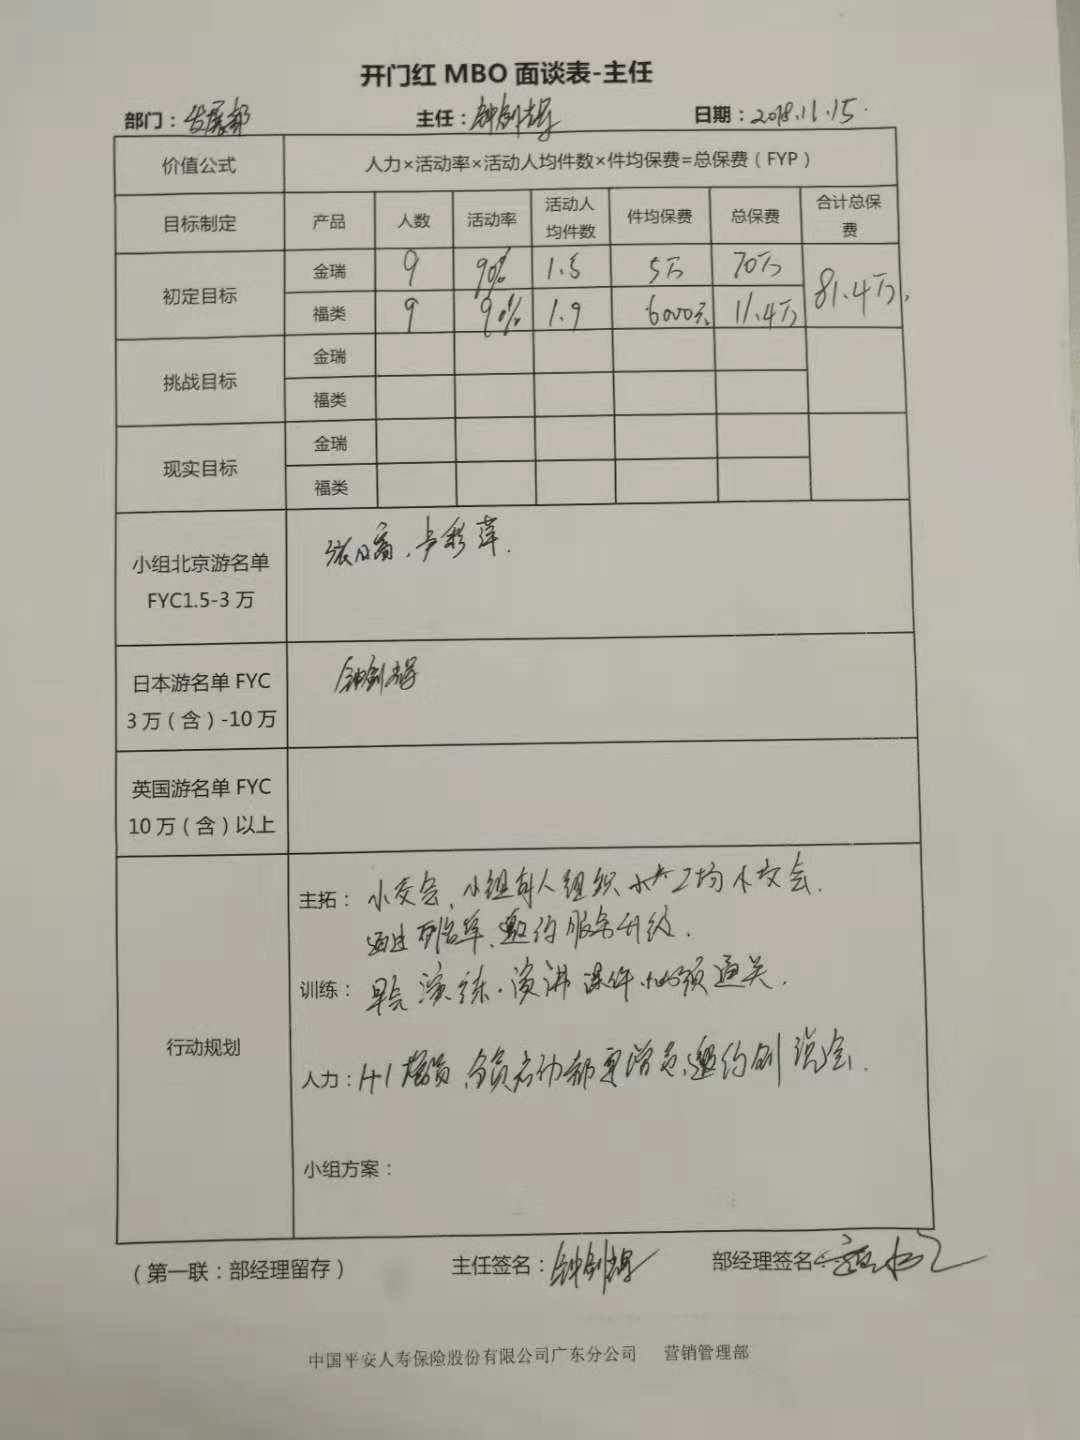 开门红 MBO 面谈表-主任
部门：发展部 主任：钟剑辉 日期：2018.11.15.
价值公式 人力×活动率×活动人均件数×件均保费=总保费（FYP）
目标制定 产品 人数 活动率 活动人均件数 件均保费 总保费 合计总保费
初定目标 金瑞 9 90% 1.5 5万 70万 81.4万.
福类 9 90% 1.9 6000元 11.4万
挑战目标 金瑞
福类
现实目标 金瑞
福类
小组北京游名单
FYC1.5-3 万
卢彩萍.
日本游名单 FYC
3 万（含）-10 万
钟剑辉
英国游名单 FYC
10 万（含）以上
行动规划
主拓：小交会, 小组每人组织 2场小交会.
通过列名单、邀约服务升级.
训练：早会演练.演讲课件.必须通关.
人力：1+1增员,全员启动都要增员,邀约创说会.
小组方案：
（第一联：部经理留存） 主任签名：钟剑辉 部经理签名：
中国平安人寿保险股份有限公司广东分公司 营销管理部